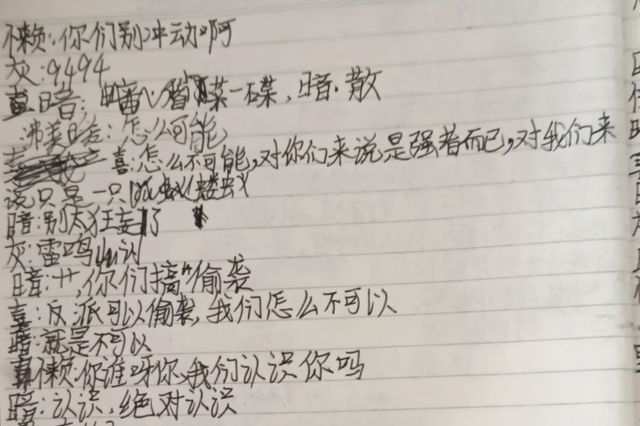 懒:你们别冲动啊
灰:9494
暗:碟一碟,暗·散
沸美暖:怎么可能,
喜:怎么不可能,对你们来说是强者而已,对我们来
说只是一只蝼蚁
暗:别太狂妄了
灰:雷鸣
暗:艹,你们搞偷袭
喜:反派可以偷袭,我们怎么不可以
暗:就是不可以
懒:你谁呀你,我们认识你吗
暗:认识,绝对认识